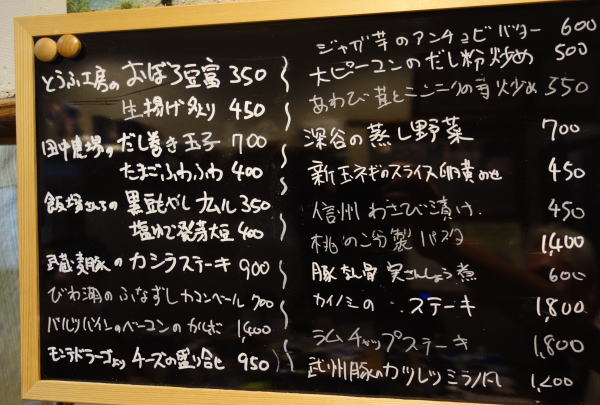 とうふ工房の おぼろ豆富 350
生揚げ炙り 450
田中農場の だし巻き玉子 700
たまごふわふわ 400
飯塚さんちの 黒豆もやし ナムル 350
塩ゆで発芽大豆 400
武蔵麦豚の カシラステーキ 900
びわ湖のふなずし カマンベール 700
のベーコンの 1,400
モンテドラーゴより チーズの盛り合せ 950
ジャガ芋のアンチョビバター 600
大ピーコンのだし粉炒め 500
あわび茸とニンニクの 炒め 550
深谷の蒸し野菜 700
新玉ネギのスライス 卵黄のせ 450
信州 わさび漬け 450
桃の パスタ 1,400
豚なん骨 実さんしょう煮 600
カイノミの ステーキ 1,800
ラムチャップステーキ 1,800
武州豚のカツレツミラノ風 1,200